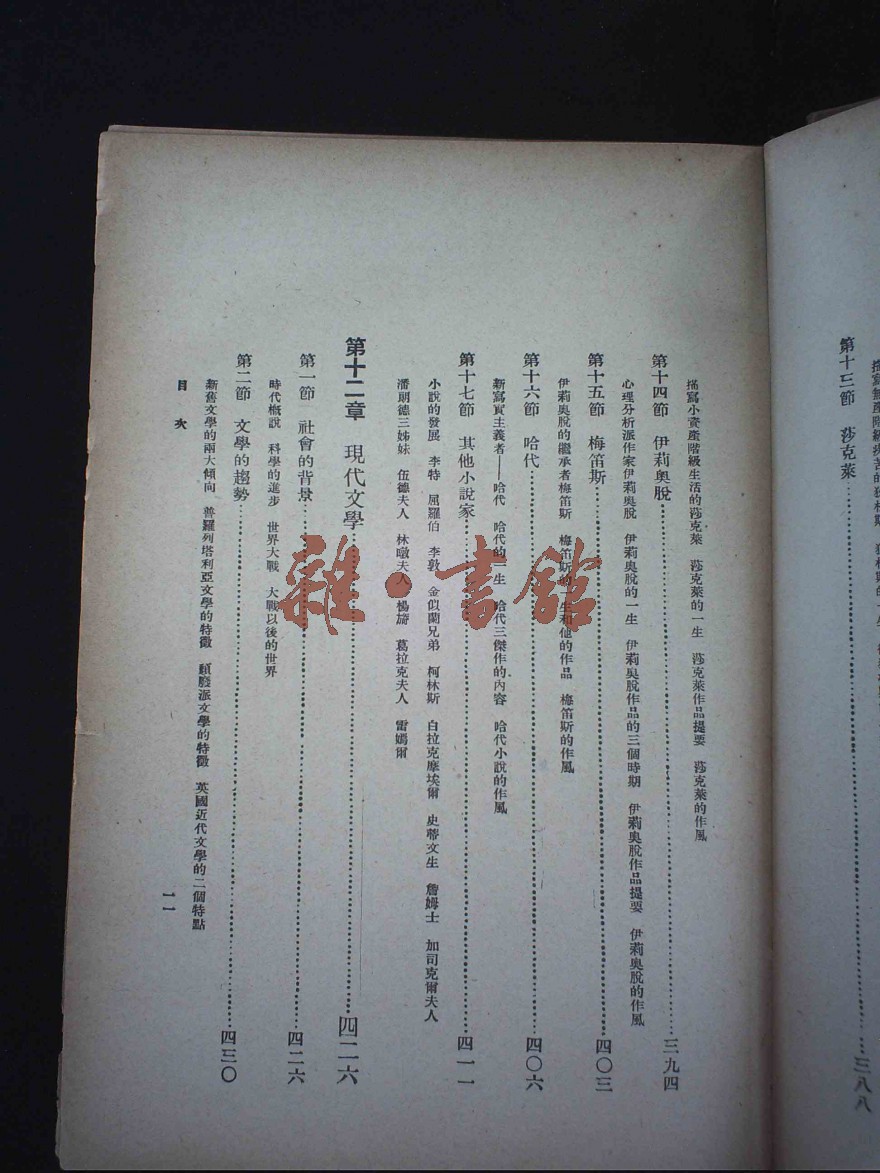 第十三節　莎克萊……三八八
描寫小資產階級生活的莎克萊　莎克萊的一生　莎克萊作品提要　莎克萊的作風
第十四節　伊莉奧脫……三九四
心理分析派作家伊莉奧脫　伊莉奧脫的一生　伊莉奧脫作品的三個時期　伊莉奧脫作品提要　伊莉奧脫的作風
第十五節　梅笛斯……四〇三
伊莉奧脫的繼承者梅笛斯　梅笛斯的一生和他的作品　梅笛斯的作風
第十六節　哈代……四〇六
新寫實主義者——哈代　哈代的一生　哈代三傑作的內容　哈代小說的作風
第十七節　其他小說家……四一一
小說的發展　李特　屈羅伯　李敦　金似蘭兄弟　柯林斯　白拉克摩埃爾　史蒂文生　詹姆士　加司克爾夫人
潘朗德三姊妹　伍德夫人　林暾夫人　楊　葛拉克夫人　雷嫣爾
第十二章　現代文學……四二六
第一節　社會的背景……四二六
時代概說　科學的進步　世界大戰　大戰以後的世界
第二節　文學的趨勢……四三〇
新舊文學的兩大傾向　普羅列塔利亞文學的特徵　頹廢派文學的特徵　英國近代文學的二個特點
目次
一一
雜·書館